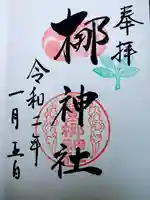 奉拝
梛神社
令和二年
一月五日